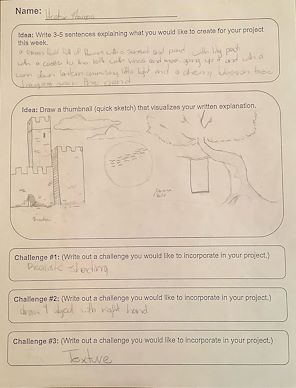 Name:
Idea: Write 3-5 sentences explaining what you would like to create for your project
this week.
a flower field full of flowers with a sunset and pond with lily pads
with a castle to the left with vines and moss going up it and with a
worn down lantern omitting little light and a cherry blossom tree
hanging over the pond
Idea: Draw a thumbnail (quick sketch) that visualizes your written explanation.
flower
field
Challenge #1: (Write out a challenge you would like to incorporate in your project.)
Realistic Shading
Challenge #2: (Write out a challenge you would like to incorporate in your project.)
draw 1 object with right hand
Challenge #3: (Write out a challenge you would like to incorporate in your project.)
Texture